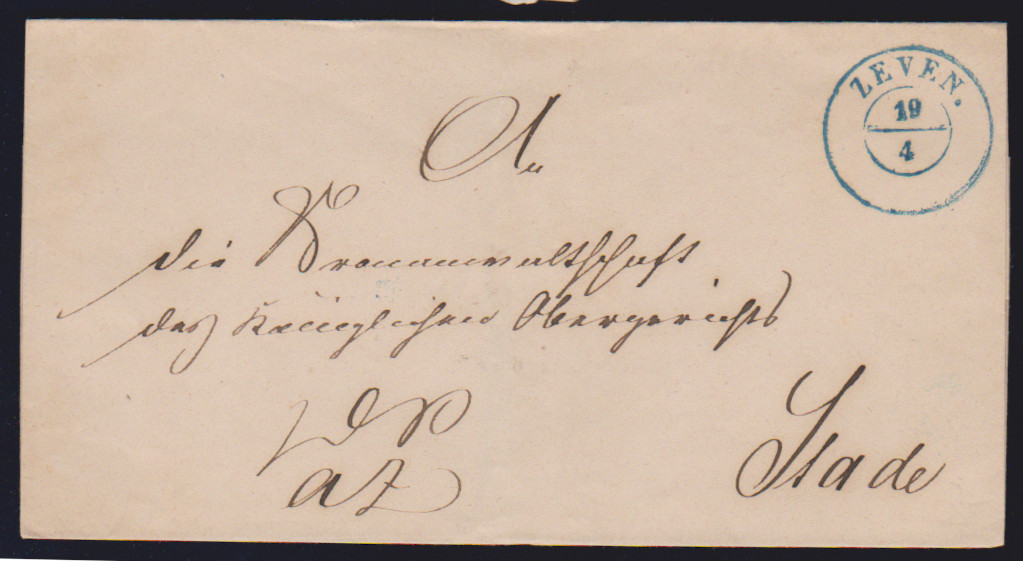 ZEVEN.
19
4
An
die Kronanwaltschaft
des Königlichen Obergerichts
Stade